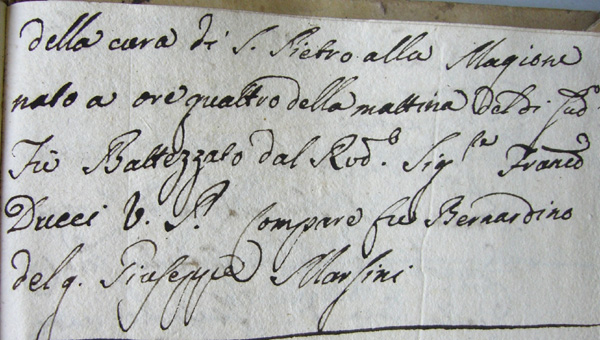 della cura di S. Pietro alla Magione
nato a ore quattro della mattina del dì sud.º
Fù Battezzato dal Rev.do Sig.re Franco
Ducci V. P. Compare fù Bernardino
del q. Giuseppe Marsini